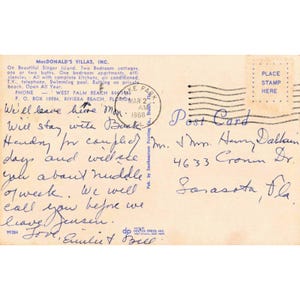 MacDONALD'S VILLAS, INC.
On Beautiful Singer Island. Two Bedroom cottages,
one or two baths. One bedroom apartments, effi-
ciencies. All with complete kitchens, air conditioned,
T.V. telephone. Swimming pool. Bathing on private
beach. Open All Year.
PHONE - WEST PALM BEACH
P. O. BOX 9884, RIVIERA BEACH, FLORIDA
We'll leave here Mon.
Will stay with
for couple of
days and will see
you about middle
of week. We will
call you before we
leave Jensen.
Love, Emilie & Bill
PARK,
MAR 2
AM
1966
PLACE
STAMP
HERE
Post Card
Mr. & Mrs. Henry
4633 Dr.
Sarasota, Fla.
dp